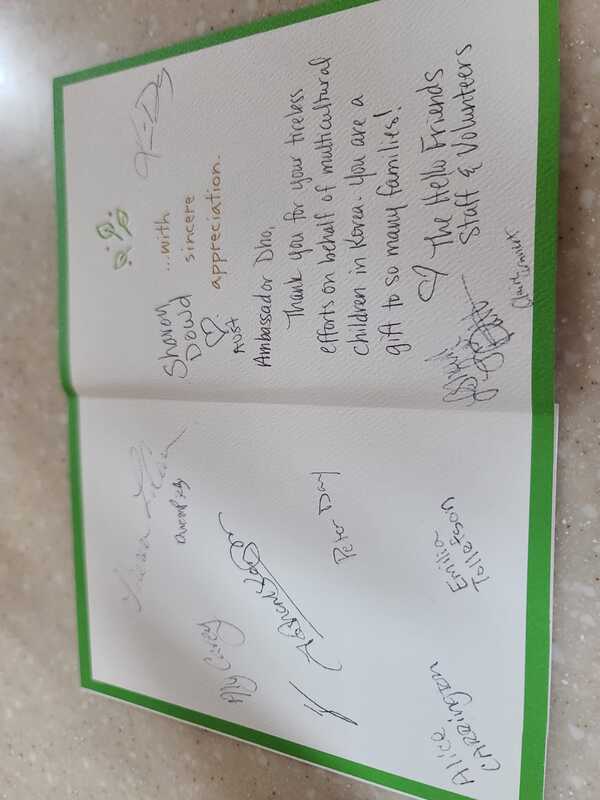 Alice
CARRINGTON
Emilia
Tollefson
Aly Covey
Peter Day
...with
sincere
appreciation.
Sharon
Dowd
♡
AUST
Ambassador Dho,
Thank you for your tireless
efforts on behalf of multicultural
children in Korea. You are a
gift to so many families!
♡ The Hello Friends
Staff & Volunteers